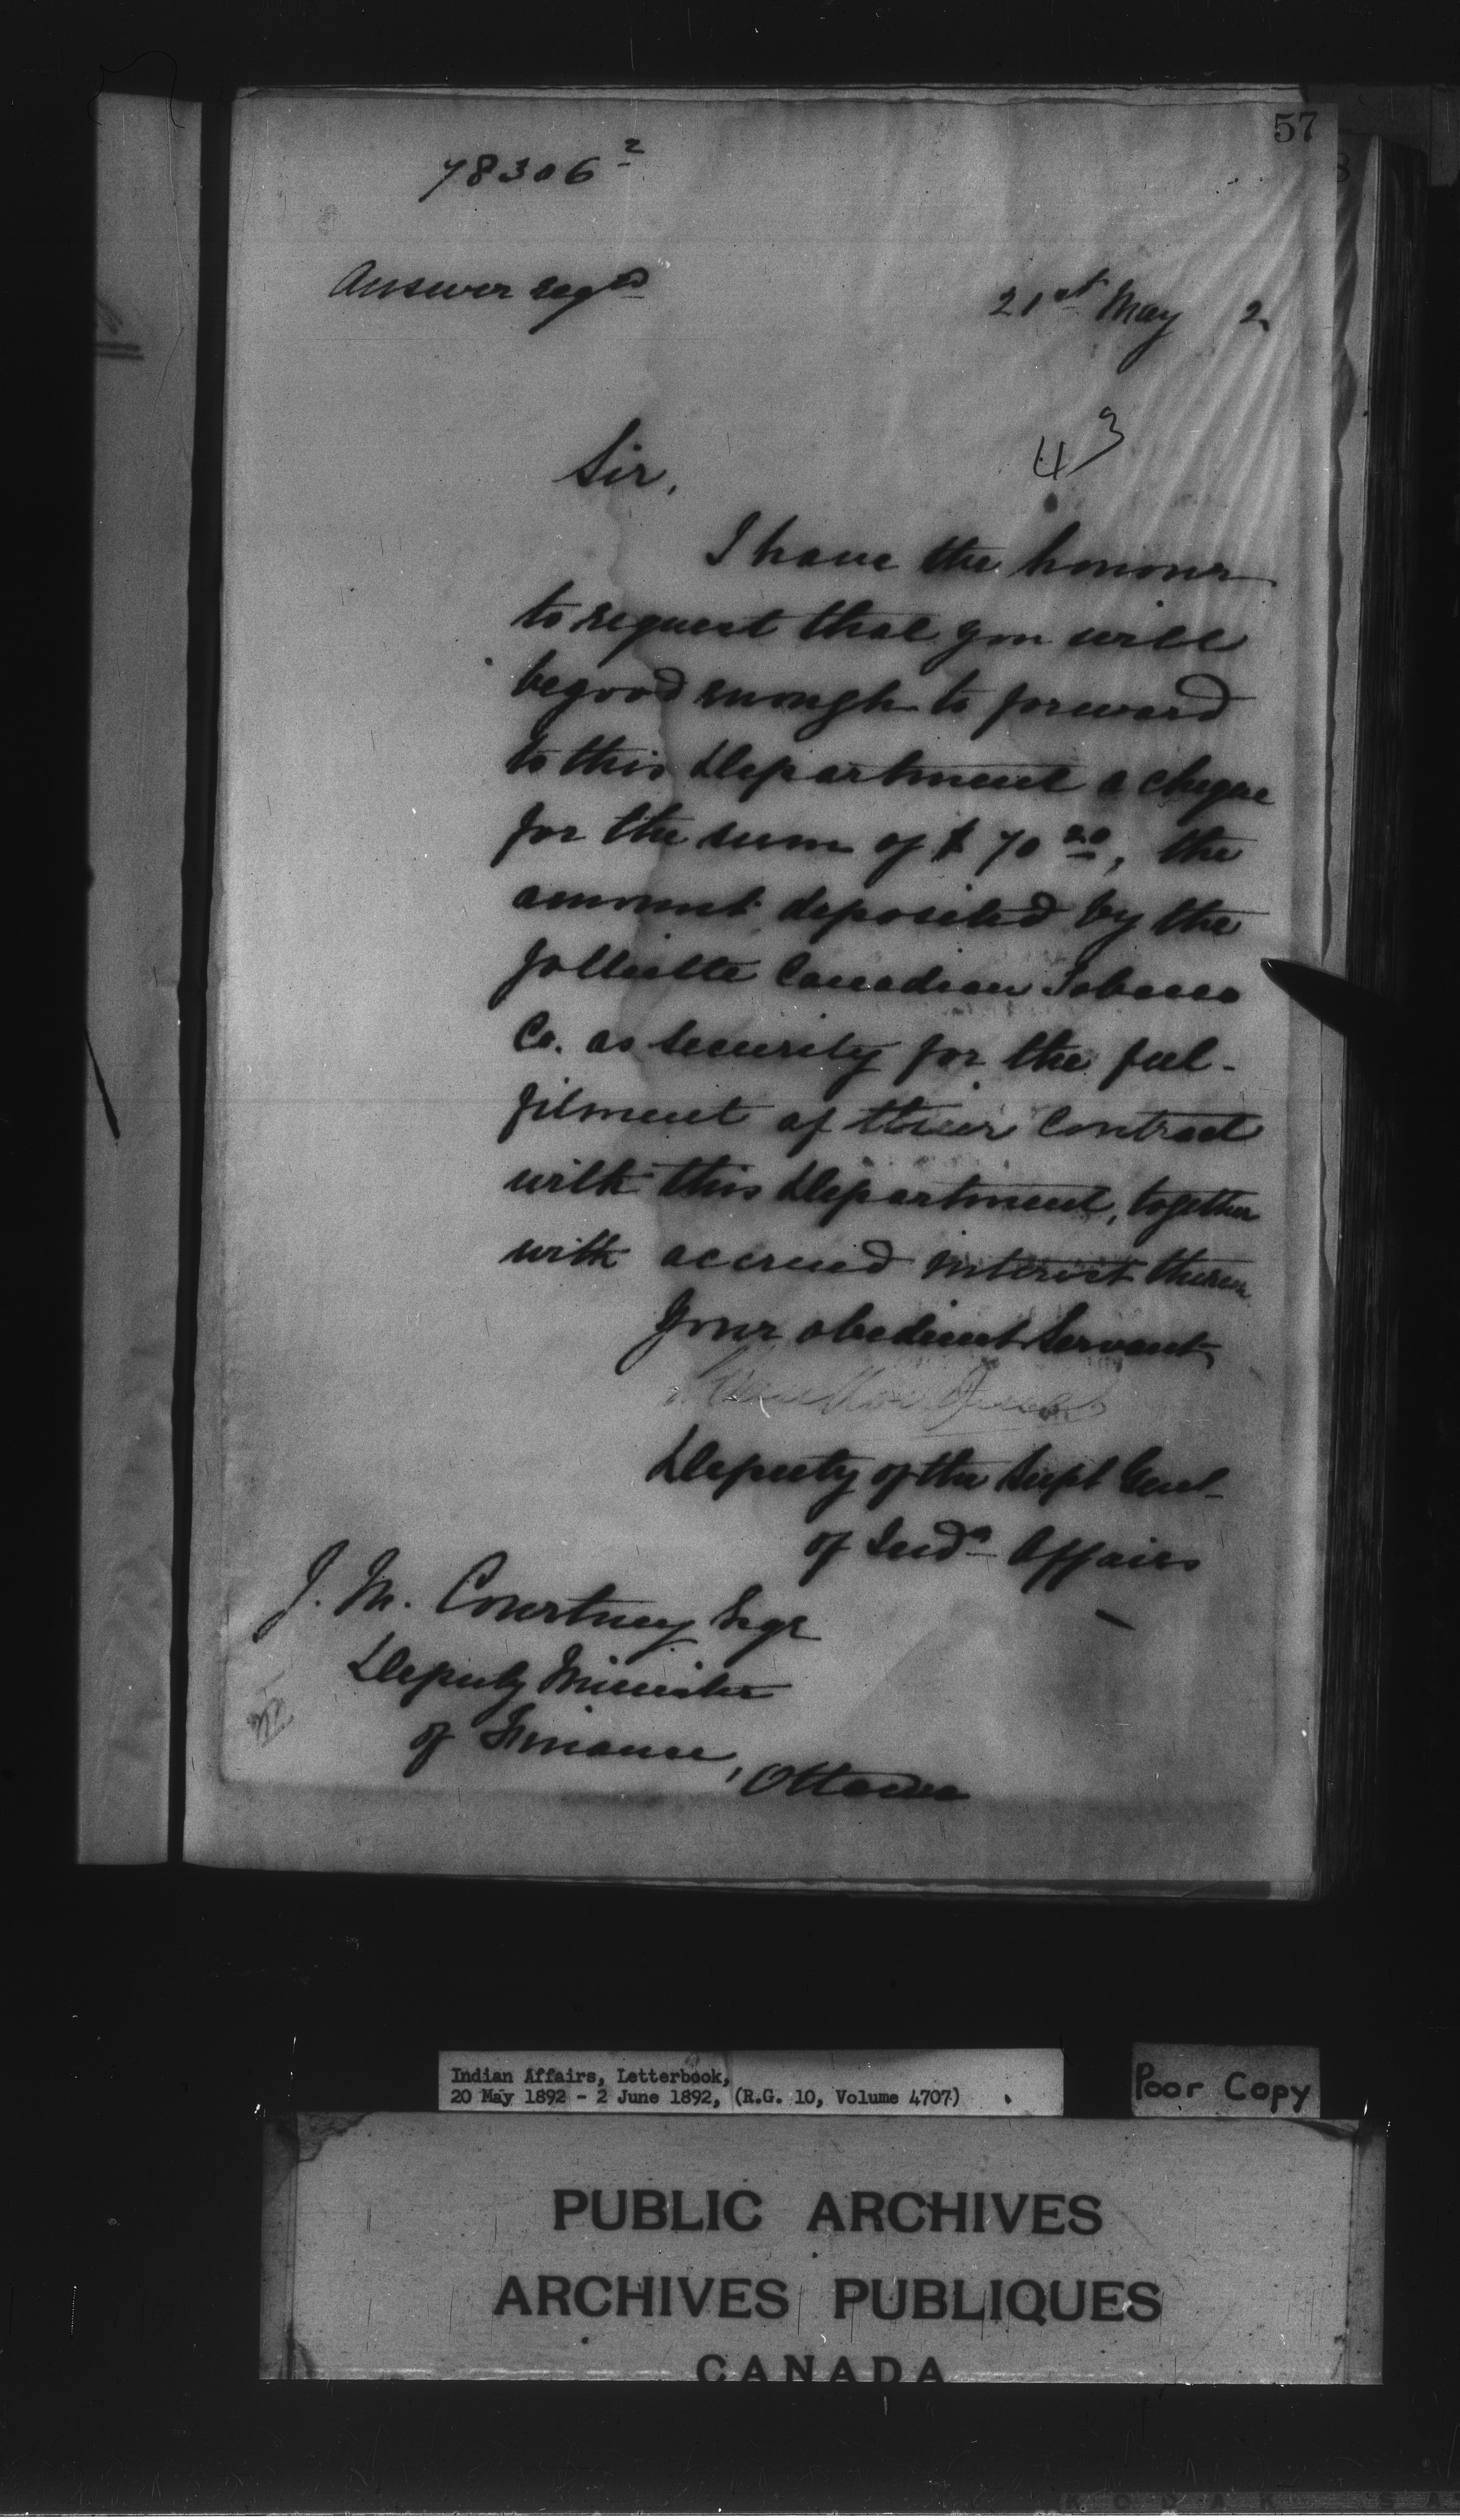 57
78306²
Answer reqd
21st May 2
43
Sir,
I have the honour
to request that you will
be good enough to forward
to this Department a cheque
for the sum of $ 70 20, the
amount deposited by the
Jolliette Canadian Tobacco
Co. as security for the ful-
filment of their contract
with this Department, together
with accrued interest thereon
Your obedient Servant,
Deputy of the Supt Genl
of Inda Affairs
J. M. Courtney Esqr
Deputy Minister
of Finance, Ottawa
Indian Affairs, Letterbook,
20 May 1892 - 2 June 1892, (R.G. 10, Volume 4707)
Poor Copy
PUBLIC ARCHIVES
ARCHIVES PUBLIQUES
CANADA